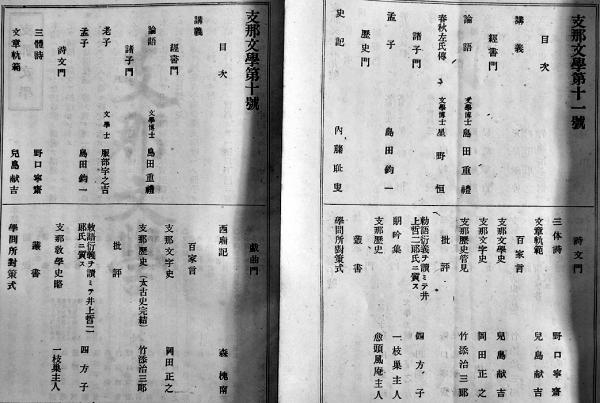 支那文學第十一號
目次
講義
經書門
論語 文學博士 島田重禮
春秋左氏傳 文學博士 星野恒
諸子門
孟子 島田鈞一
歷史門
史記 內藤耻叟
詩文門
三体詩 野口寧齋
文章軌範 兒島献吉
百家言
支那文學史 兒島献吉
支那文字史 岡田正之
支那歷史管見 竹添治三郎
批評
勅語衍義ヲ讀ミテ井上哲二郎氏ニ質ス 四方子
嚼吟集 一枝巢主人
支那歷史 愈頭風庵主人
叢書
學問所對策式
支那文學第十號
目次
講義
經書門
論語 文學博士 島田重禮
諸子門
老子 文學士 服部宇之吉
孟子 島田鈞一
詩文門
三體詩 野口寧齋
文章軌範 兒島献吉
戯曲門
西廂記 森槐南
百家言
支那文字史 岡田正之
支那歷史(太古史完結) 竹添治三郎
批評
勅語衍義ヲ讀ミテ井上哲二郎氏ニ質ス 四方子
支那教學史略 一枝巢主人
叢書
學問所對策式